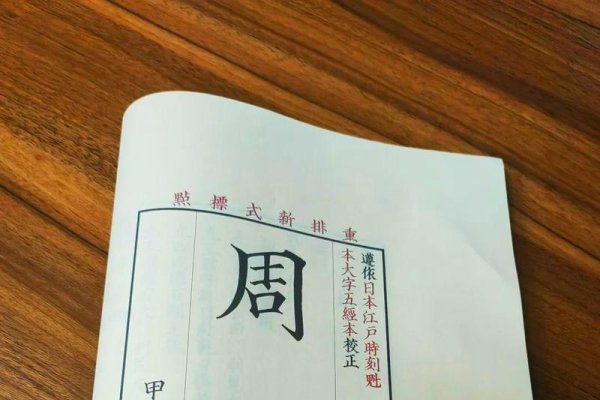 重排新式標點
遵依日本江戶時刻魁
本大字五經本校正
周
甲